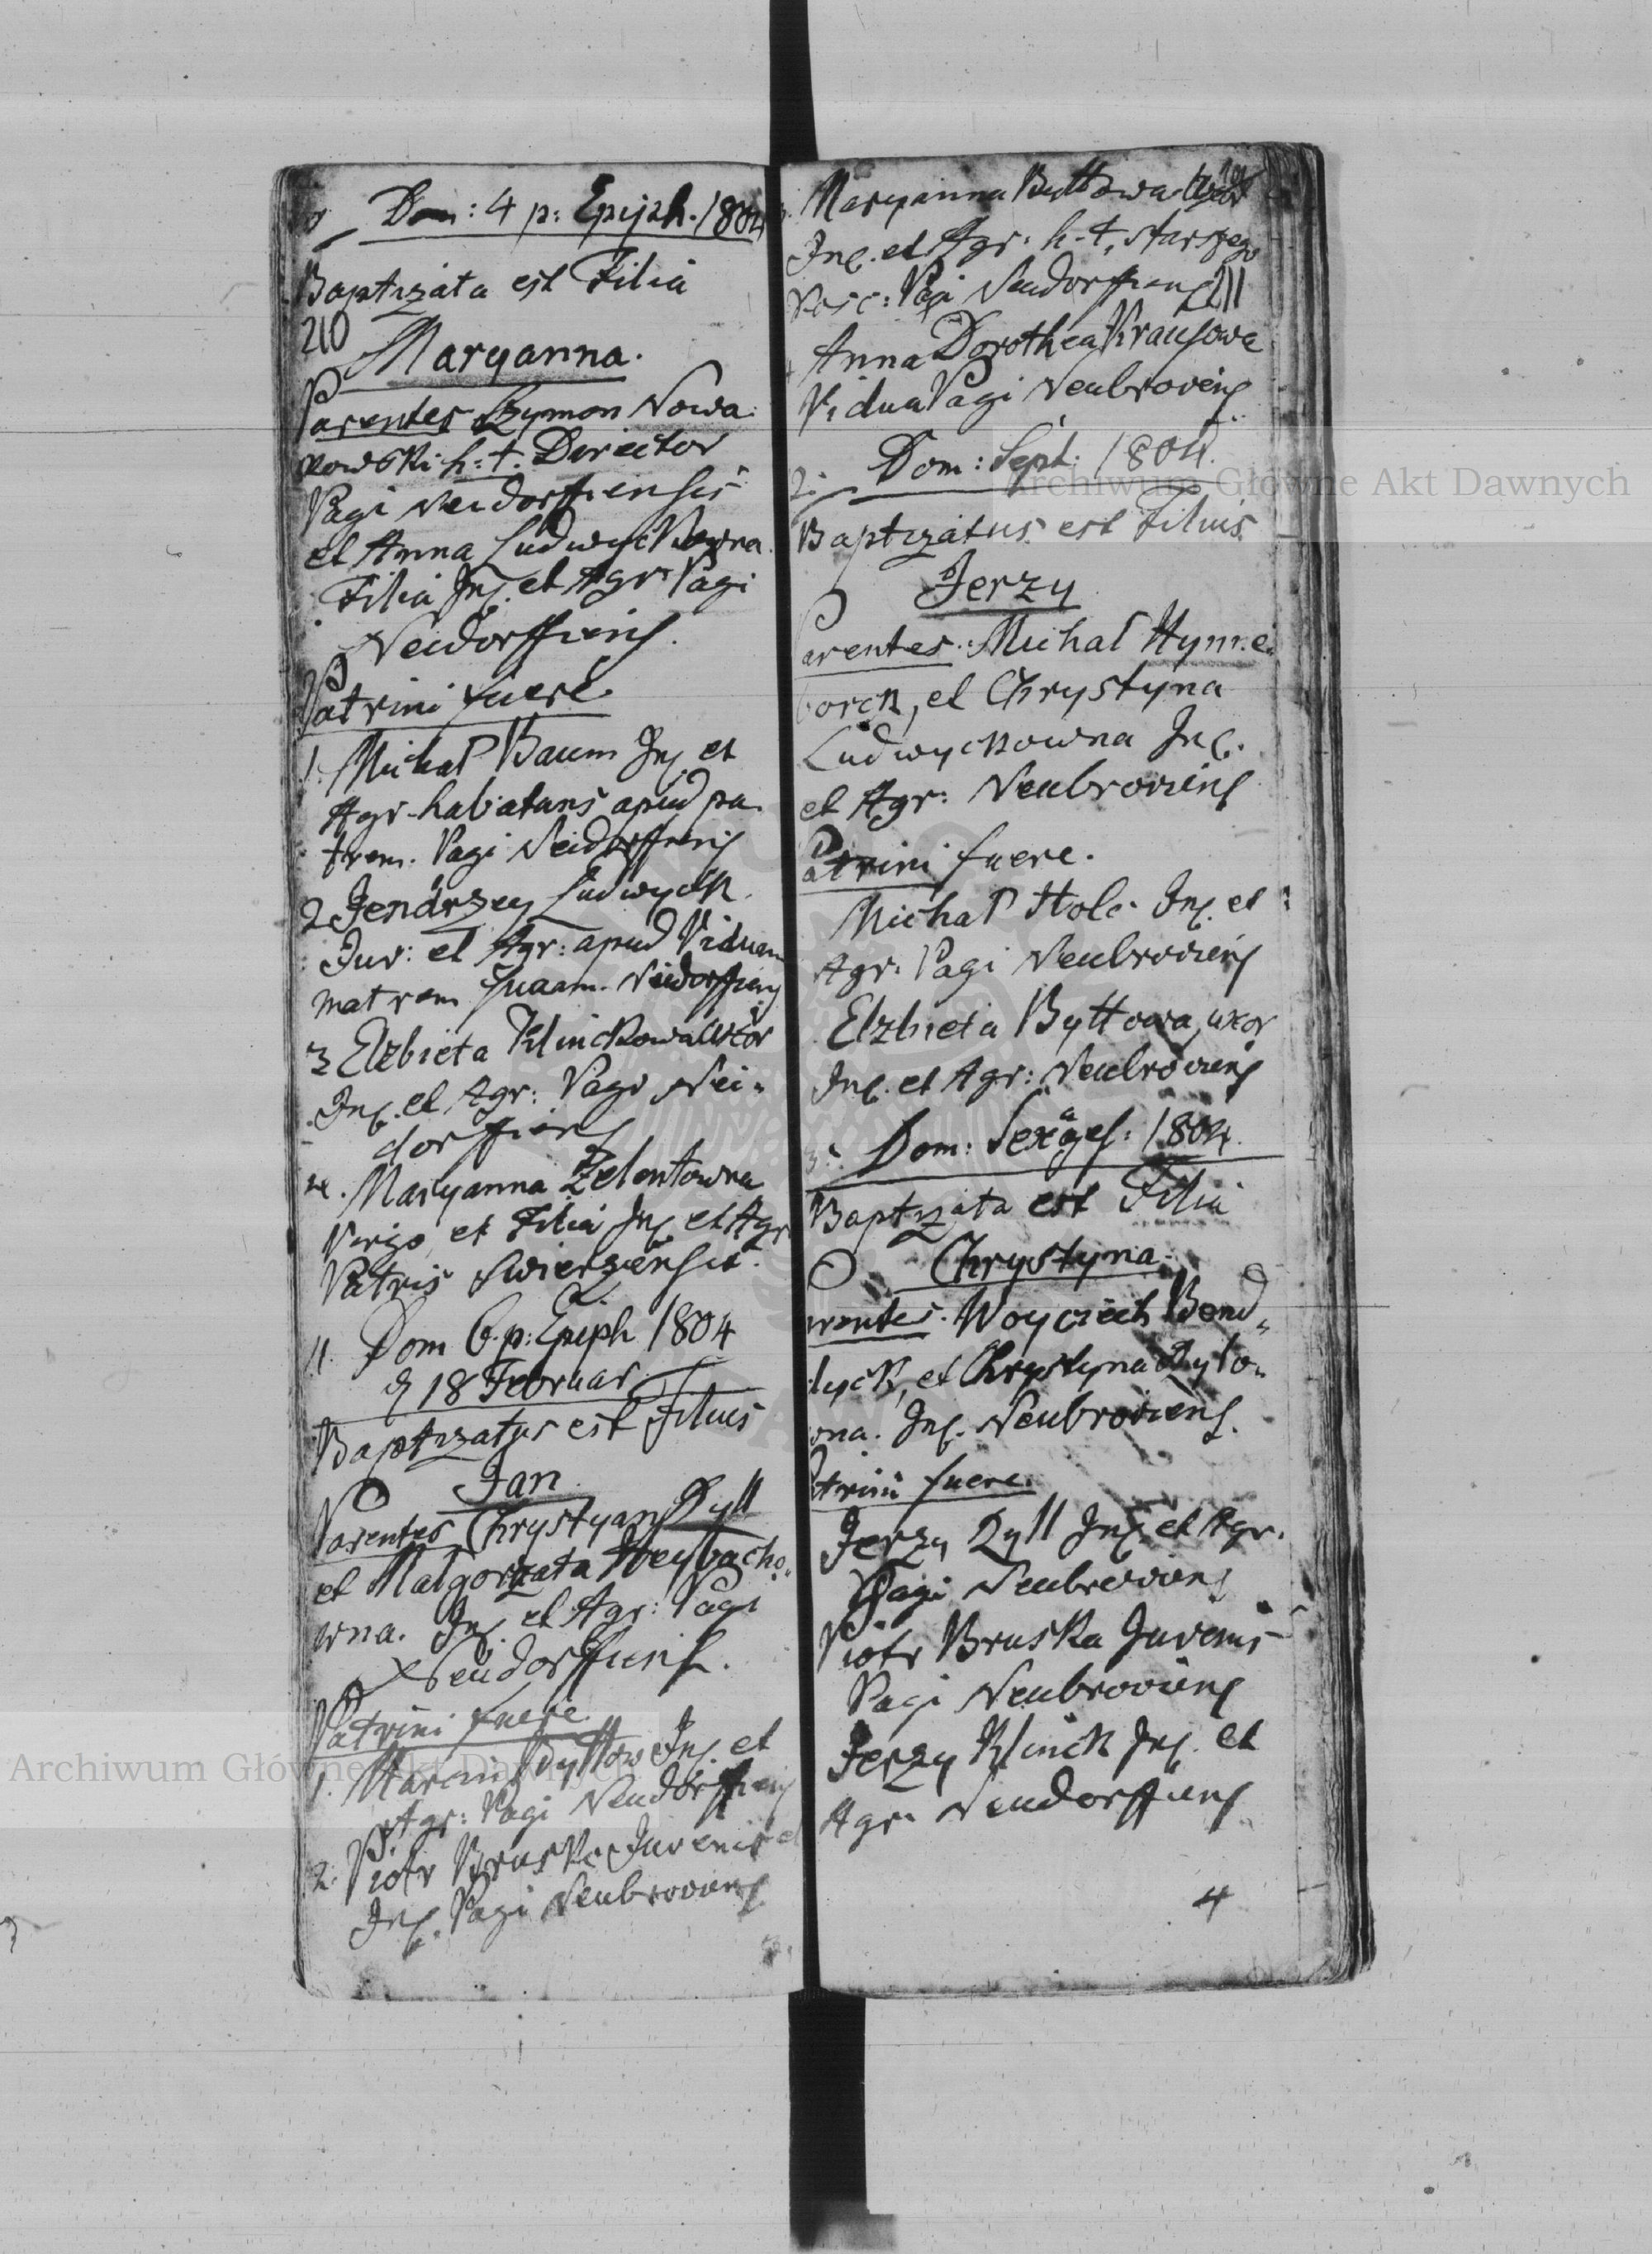 Dom: 4 p: Epiph. 1804
Baptizata est Filia
210
Maryanna.
Parentes Szymon Nowa:
kowski h: t. Director
Pagi Neidorffiensis
et Anna Ludwyckowna
Filia Inq. et Agr: Pagi
Neidorffiens.
Patrini fuere.
1. Michał Baum Inq. et
Agr. habitans apud pa-
trem. Pagi Neidorffiens
2 Jendrzey Ludwyck
Juv: et Agr: apud Viduam
matrem suam. Neidorffiens
3 Elzbieta Klinckowa Uxor
Inq. et Agr: Pagi Nei-
dorffiens
4. Maryanna Zelentowna
Virgo et Filia Inq. et Agr
Patris Swierzensis.
11. Dom 6. p: Epiph 1804
d 18 Februar
Baptizatus est Filius
Jan
Parentes Chrystyan Dyll
et Malgorzata Heybacho-
wna. Inq. et Agr: Pagi
Neudorffiens.
Patrini fuere
1. Marcin Inq. et
Agr: Pagi Neudorffiens
2. Piotr Bruska Juvenis et
Inq. Pagi Neubroviens
Maryanna Byttowa Uxor
Inq. et Agr: h. t. starszego
Pagi Neudorffiens 211
Anna Dorothea Krausowa
Vidua Pagi Neubroviens
2: Dom: Sept: 1804.
Baptizatus est Filius
Jerzy
Parentes. Michał Hynne-
borck, et Chrystyna
Ludwyckowna Inq.
et Agr: Neubroviens
Patrini fuere.
Michał Holc Inq. et
Agr. Pagi Neubroviens
Elzbieta Byttowa, uxor
Inq. et Agr: Neubroviens
3: Dom: Sexages: 1804.
Baptizata est Filia
Chrystyna
Parentes. Woyciech Bend-
lyck, et Chrystyna Ryto-
wna. Inq. Neubroviens.
Patrini fuere.
Jerzy Ryll Inq. et Agr.
Pagi Neubroviens
Piotr Bruska Juvenis
Pagi Neubroviens
Jerzy Klinck Inq. et
Agr. Neudorffiens
4
Archiwum Główne Akt Dawnych
Archiwum Główne Akt Dawnych